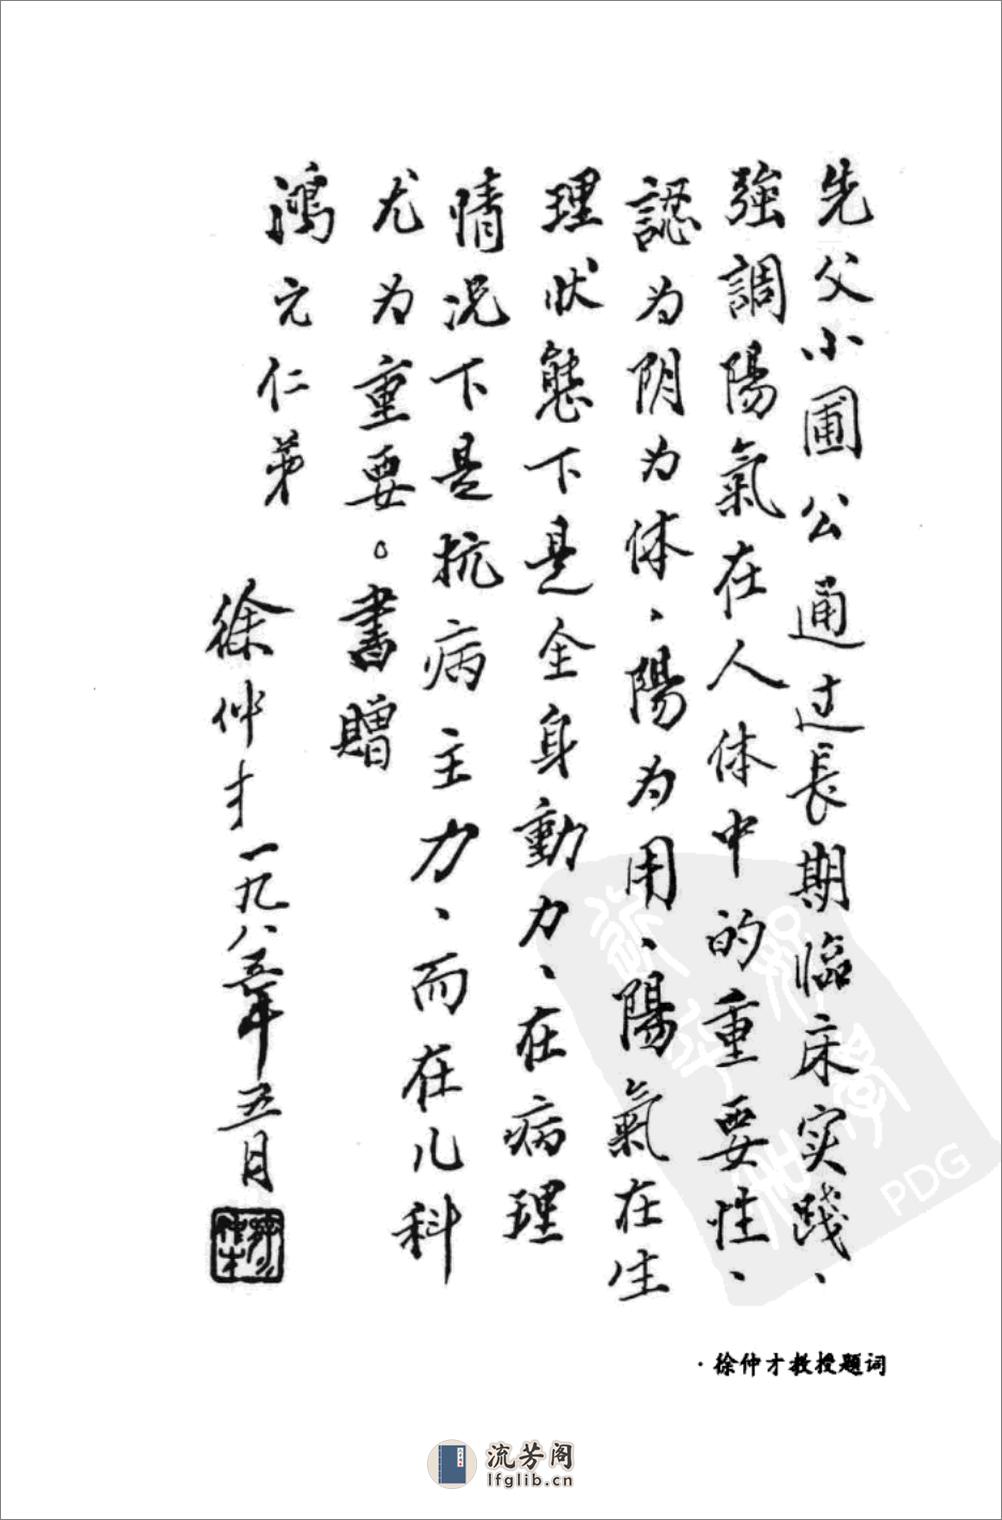 先父小圃公通过長期臨床实践、
強調陽氣在人体中的重要性、
認为阴为体、陽为用、陽氣在生
理状態下是全身動力、在病理
情况下是抗病主力、而在儿科
尤为重要。書贈
鴻元仁弟
徐仲才一九八五年五月
·徐仲才教授题词
PDG
流芳阁
lfglib.cn